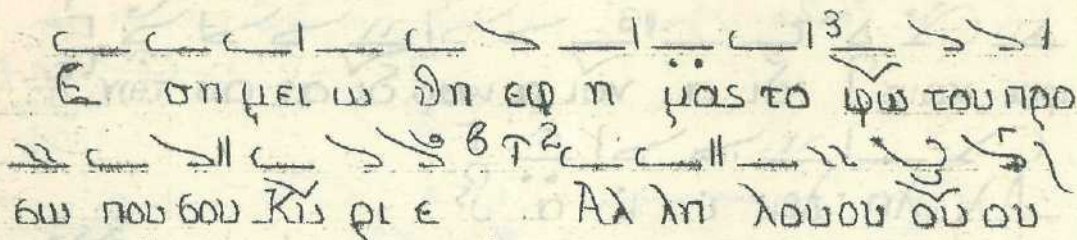 Ε ση μει ω θη εφ η μας το φω του προ
σω που σου Κυ ρι ε Αλ λη λου ου ου ου